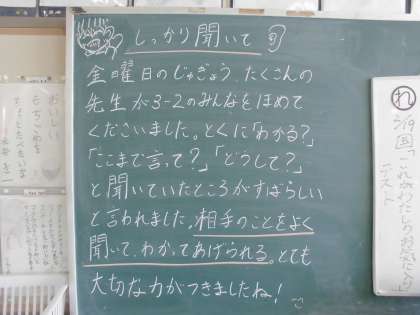 しっかり聞いて
金曜日のじゅぎょう、たくさんの
先生が3-2のみんなをほめて
くださいました。とくに「わかる?」
「ここまで言って?」「どうして?」
と聞いていたところがすばらしい
と言われました。相手のことをよく
聞いて、わかってあげられる。とても
大切な力がつきましたね!
れ
2/19
国「これがわたしのお気に入り」
テスト